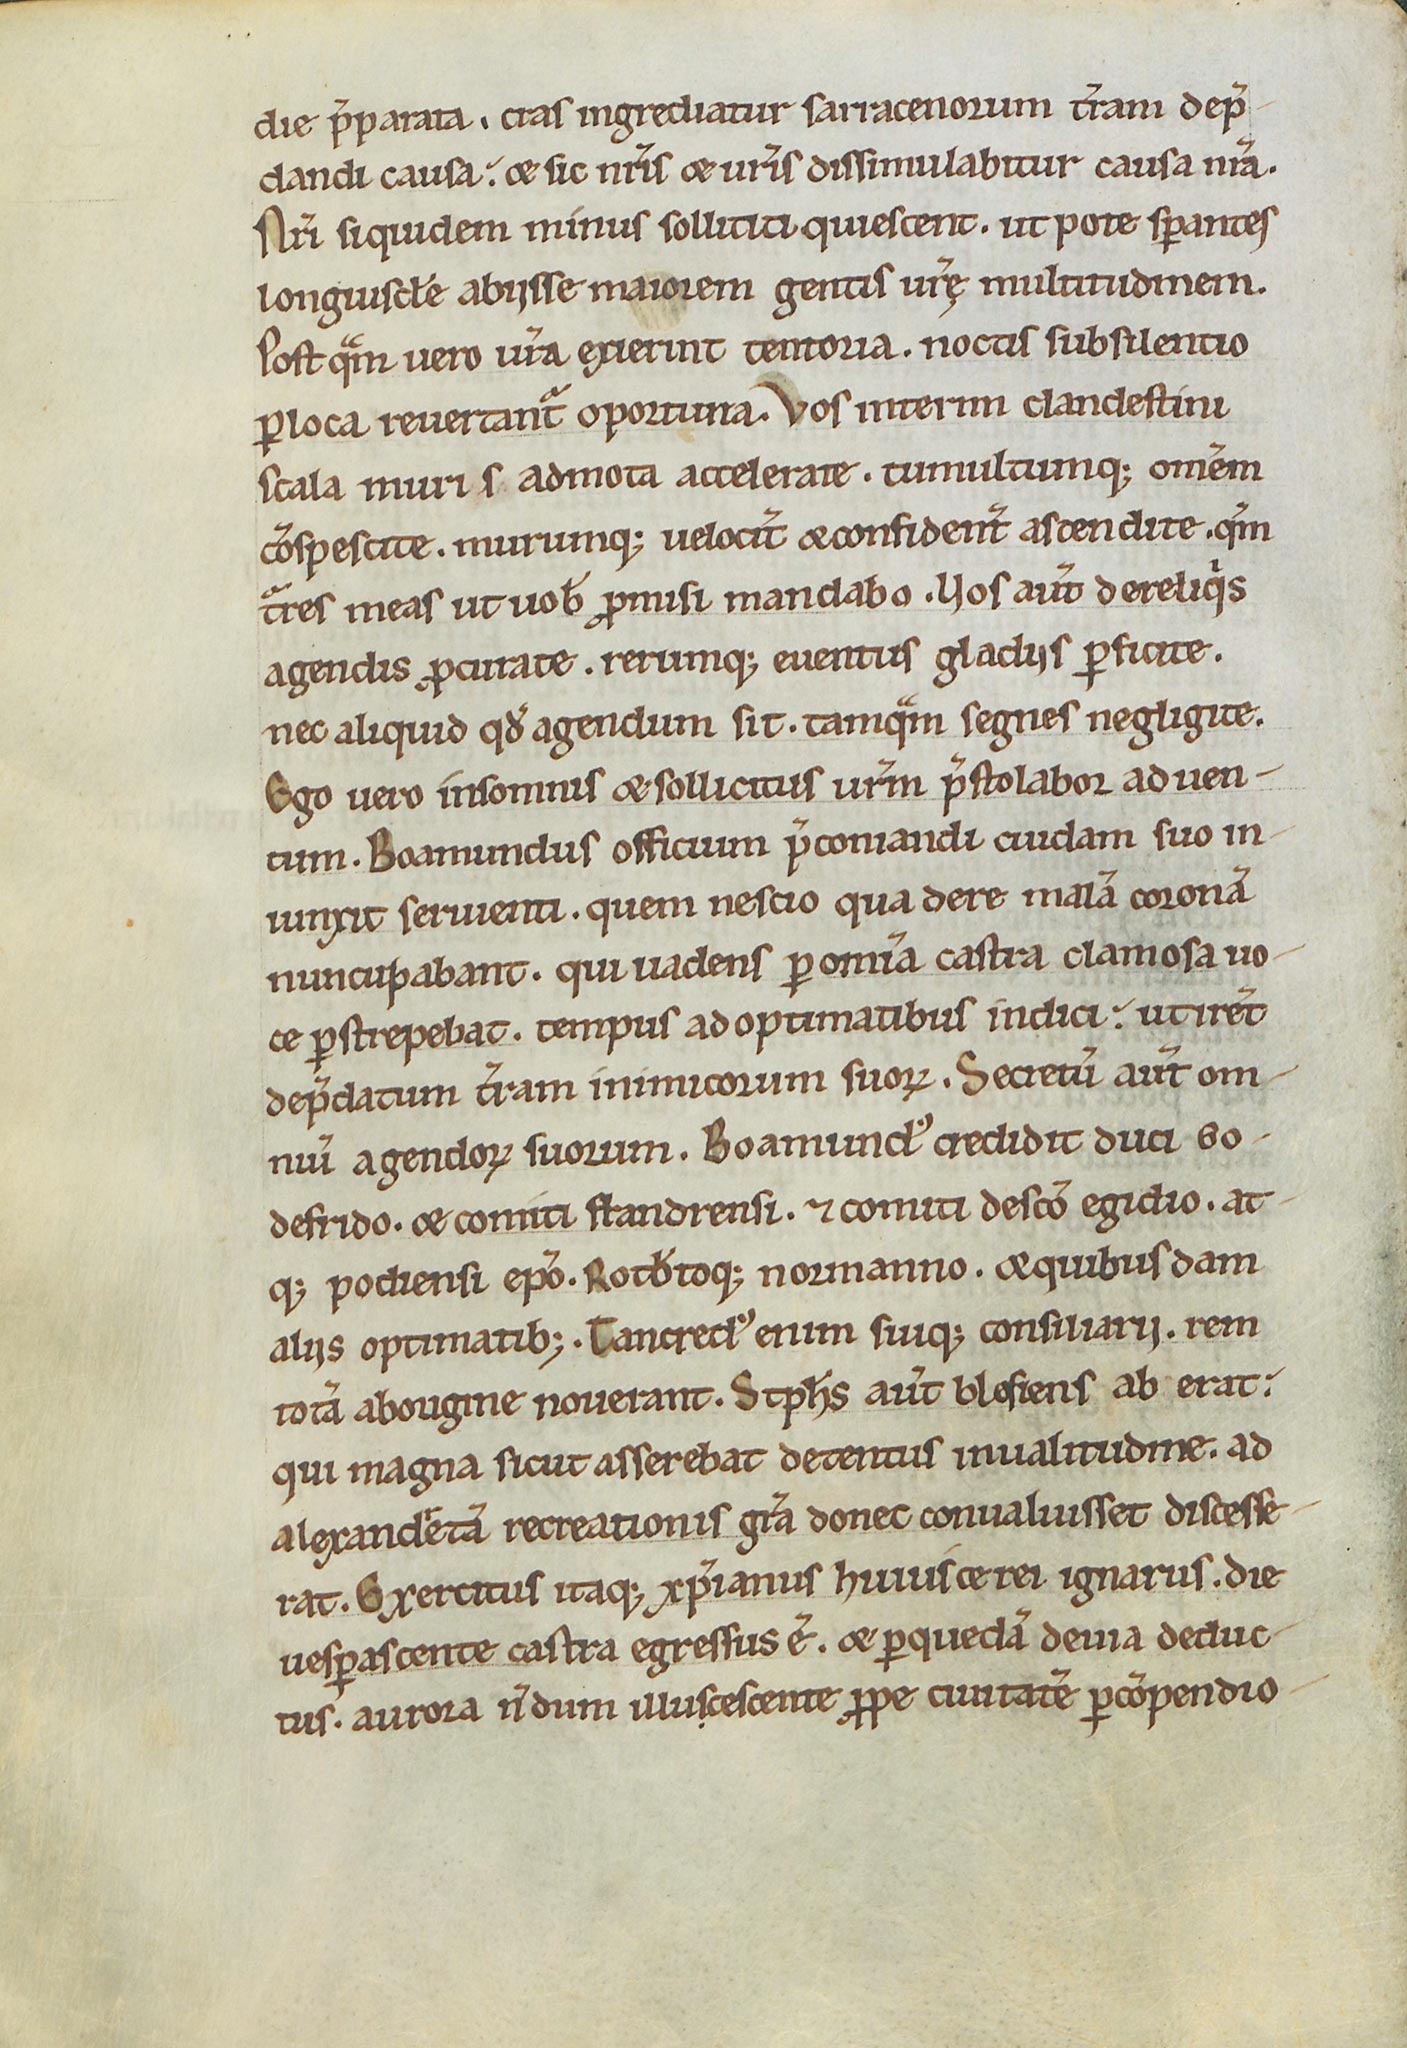 die p̄parata . cras ingrediatur sarracenorum t̄ram dep̄-
dandi causa : & sic nr̄is & ur̄is dissimulabitur causa nr̄a .
Nr̄i siquidem minus solliciti quiescent . ut pote sꝑantes
longiuscl̄e abijsse maiorem gentis ur̄ę multitudinem .
Post qͣm uero ur̄a exierint tentoria . noctis subsilentio
ꝑ loca reuertant᷑ oportuna . Vos interim clandestini
scala muri s admota accelerate . tumultumq; om̄em
cōpescite . murumq; uelocit̄ & confident̄ ascendite . qm̄
tͬres meas ut uob̄ ꝓmisi mandabo . Uos aut̄ de reliqͥs
agendis ꝓcurate . rerumq; euentus gladijs ꝑficite .
nec aliquid qd̄ agendum sit . tamqͣm segnes negligite .
Ego uero insomnis & sollicitus ur̄m p̄stolabor aduen-
tum . Boamundus officium p̄coniandi cuidam suo in-
iunxit seruienti . quem nescio qua de re malā coronā
nuncupabant . qui uadens ꝑ om̄ia castra clamosa uo-
ce ꝑstrepebat . tempus ad optimatibus indici : ut iret̄
dep̄datum t̄ram inimicorum suoꝝ . Secretū aut̄ om-
niū agendoꝝ suorum . Boamundꝰ credidit duci Go-
defrido . & comiti flandrensi . ⁊ comiti de scō egidio . at-
q; podiensi ep̄o . Rotb̄toq; normanno . & quibusdam
alijs optimatib; . Tancredꝰ enim suiq; consiliarij . rem
totā ab origine nouerant . Stph̄s aut̄ blesiens ab erat :
qui magna sicut asserebat detentus inualitudine . ad
alexandr̄etā recreationis gr̄a donec conualuisset discesse-
rat . Exercitus itaq; xp̄ianus huiusce rei ignarus . die
uesꝑascente castra egressus ē . & ꝑ quedā deuia deduc-
tus . aurora n̄dum illuscescente ꝓpe ciuitatē ꝑ cōpendio-